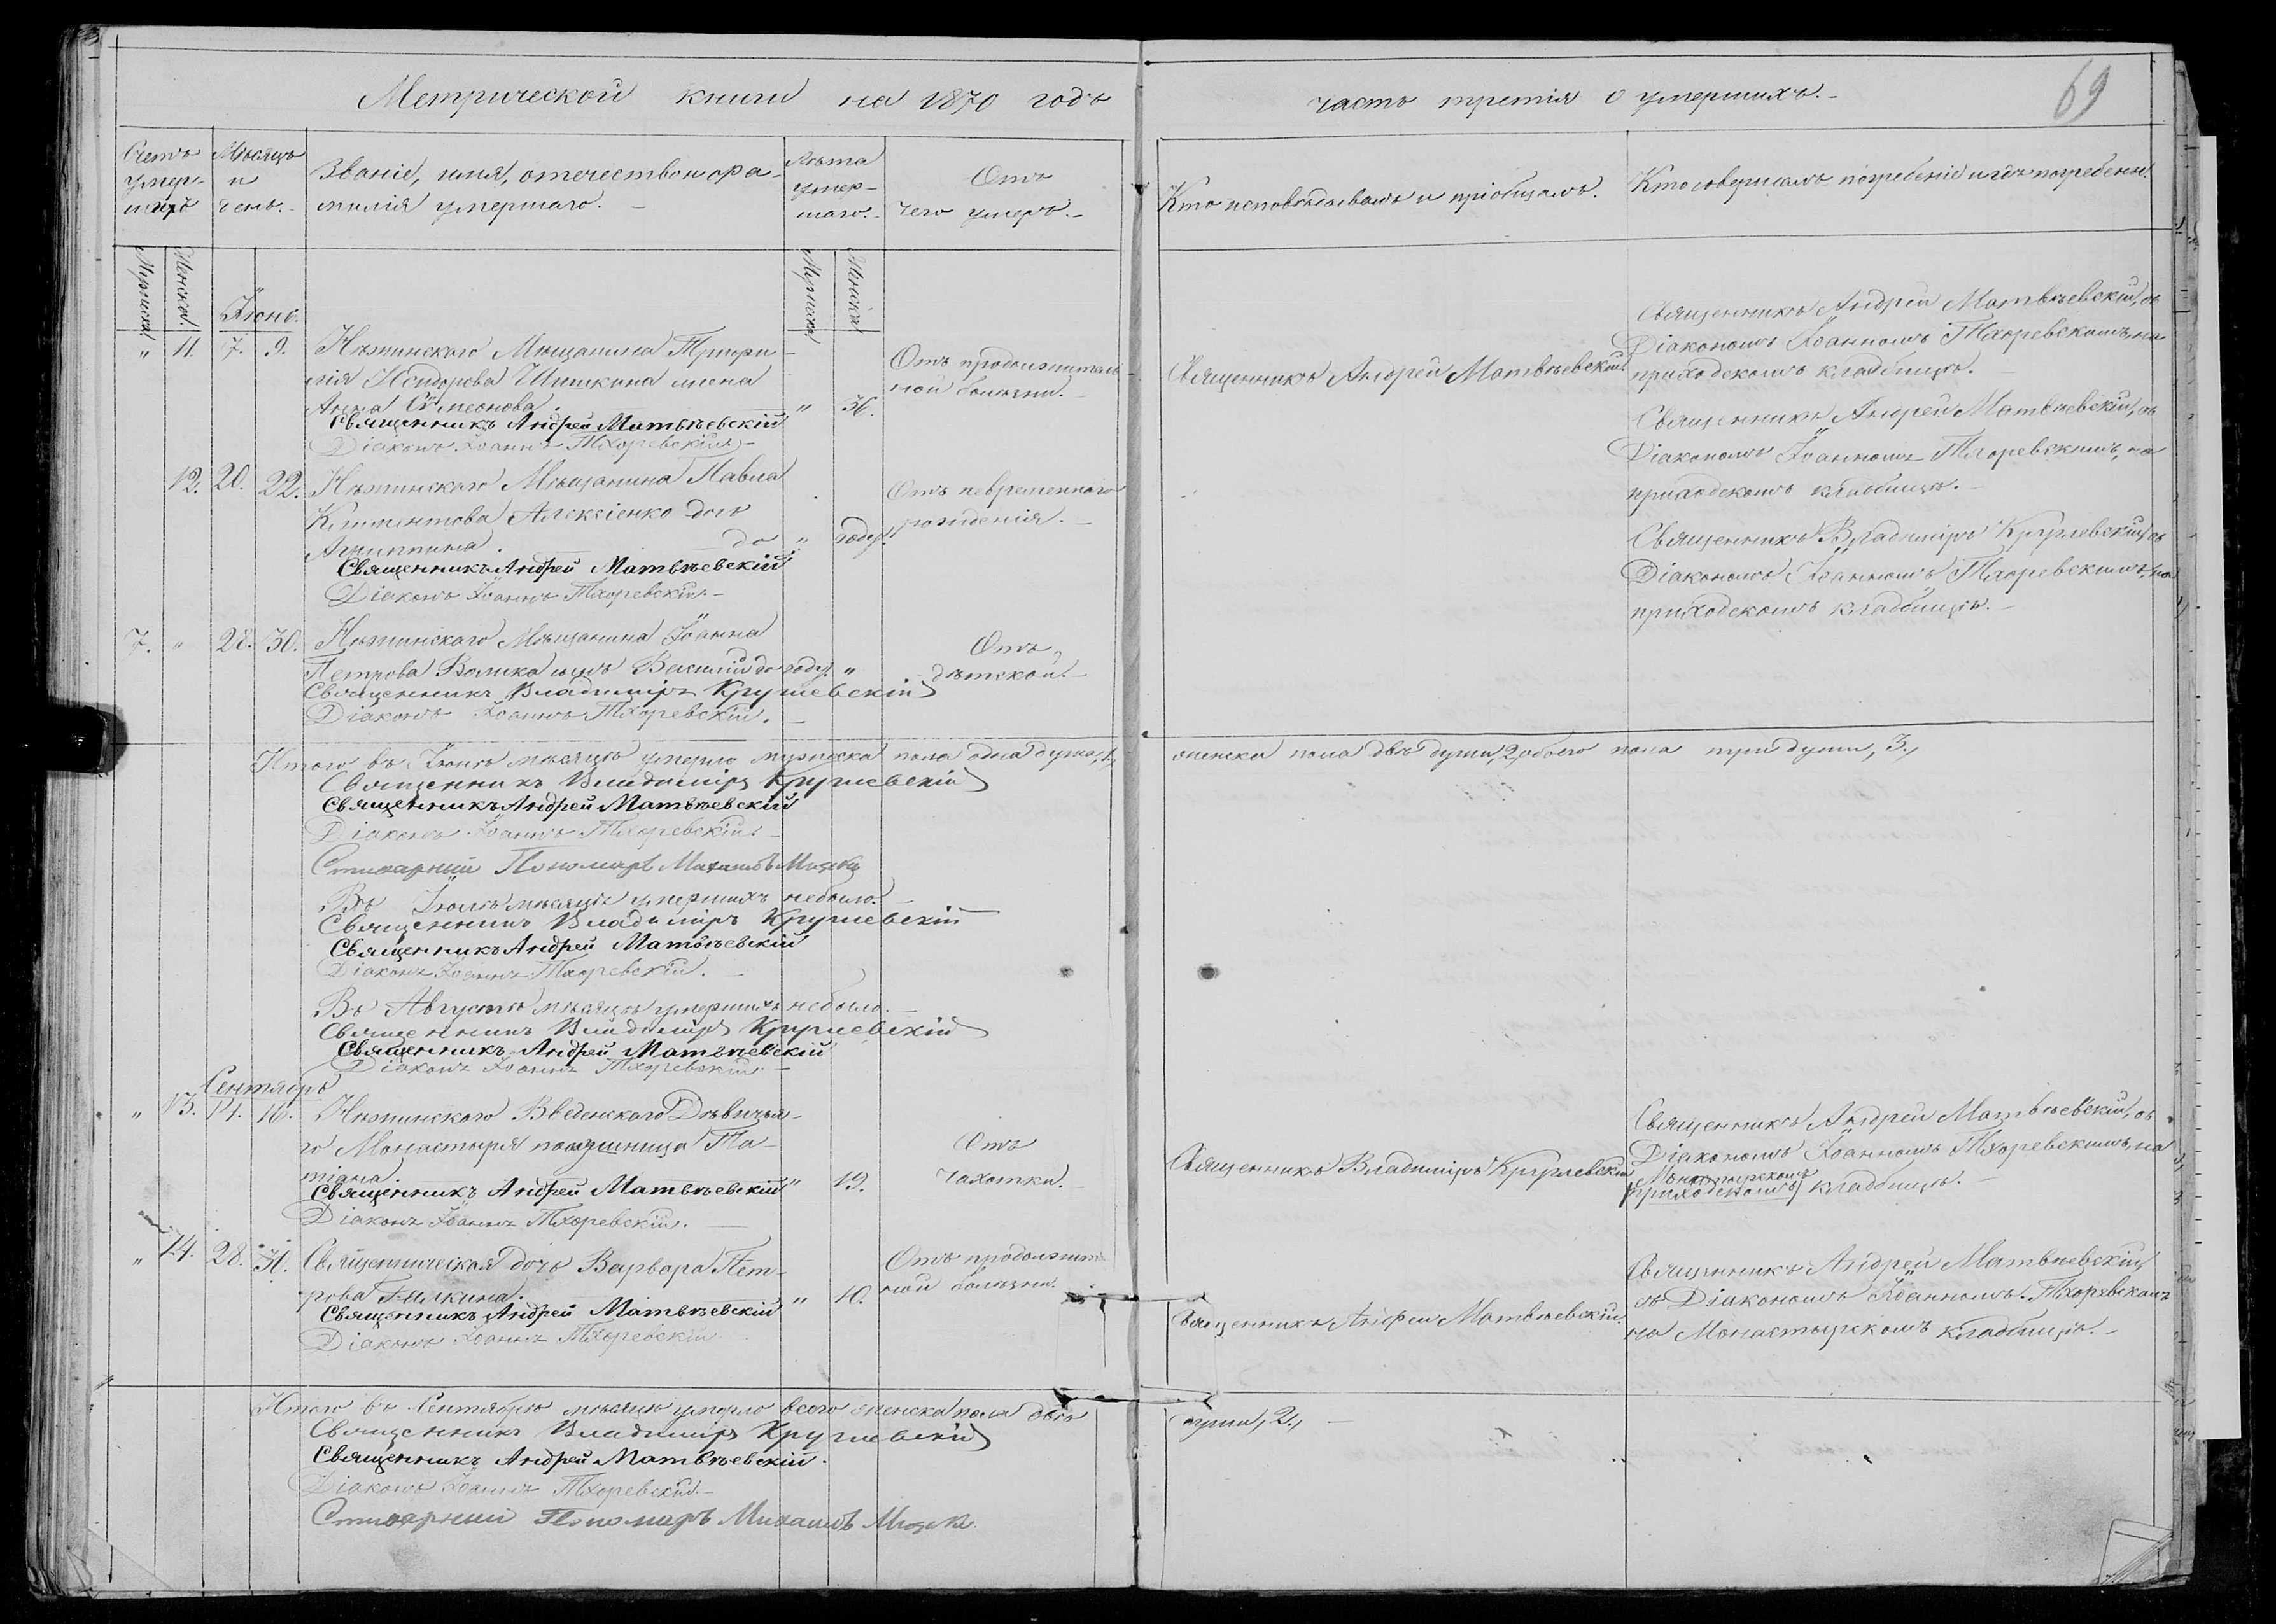 Метрической книги на 1870 годъ
часть третія о умершихъ.
69
Счетъ умер-шихъ
Мѣсяцъ и день.
Званіе, имя, отечество и фа-
милія умершаго.
Лѣта умер-шаго.
Отъ чего умеръ.
Кто исповѣдывалъ и пріобщалъ.
Кто совершалъ погребеніе и гдѣ погребены.
Мужеска
Женска.
Мужеска
Женска
Іюнь.
" 11. 7. 9. Нѣжинскаго Мѣщанина
Шишкина жена
Анна Симеонова. " 36.
Отъ продолжитель
ной болѣзни.
Священникъ Андрей Матвѣевскій
Священникъ Андрей Матвѣевскій, съ
Діакономъ Іоанномъ Тхоревскимъ, на
приходскомъ кладбищѣ.
Священникъ Андрей Матвѣевскій
Діаконъ Іоаннъ Тхоревскій
12. 20. 22. Нѣжинскаго Мѣщанина Павла
Климентова Алексіенко дочь
Агриппина. до " году.
Отъ невременнаго
рожденія.
Священникъ Андрей Матвѣевскій, съ
Діакономъ Іоанномъ Тхоревскимъ, на
приходскомъ кладбищѣ.
Священникъ Андрей Матвѣевскій
Діаконъ Іоаннъ Тхоревскій.
7. " 28. 30. Нѣжинскаго Мѣщанина Іоанна
Петрова Волика сынъ Василій до году. "
Отъ
дѣтской.
Священникъ Владиміръ Круглевскій съ
Діакономъ Іоанномъ Тхоревскимъ, на
приходскомъ кладбищѣ.
Священникъ Владиміръ Круглевскій
Діаконъ Іоаннъ Тхоревскій.
Итого въ Іюнѣ мѣсяцѣ умерло мужеска пола одна душа, 1,
женска пола двѣ души, 2, обоего пола три души, 3.,
Священникъ Владиміръ Круглевскій
Священникъ Андрей Матвѣевскій
Діаконъ Іоаннъ Тхоревскій
Стихарный Пономарь Михаилъ
Въ Іюлѣ мѣсяцѣ умершихъ небыло.
Священникъ Владиміръ Круглевскій
Священникъ Андрей Матвѣевскій
Діаконъ Іоаннъ Тхоревскій.
Въ Августѣ мѣсяцѣ умершихъ небыло.
Священникъ Владиміръ Круглевскій
Священникъ Андрей Матвѣевскій
Діаконъ Іоаннъ Тхоревскій.
Сентябрь
" 13. 14. 16. Нѣжинскаго Введенскаго Дѣвичья-
го Монастыря послушница Та-
тіана. " 19.
Отъ
чахотки.
Священникъ Владиміръ Круглевскій
Священникъ Андрей Матвѣевскій, съ
Діакономъ Іоанномъ Тхоревскимъ, на
Монастырскомъ
(приходскомъ) кладбищѣ.
Священникъ Андрей Матвѣевскій
Діаконъ Іоаннъ Тхоревскій.
" 14. 28. Священническая дочь Варвара Пет-
рова " 10.
Отъ продолжит
ной болѣзни.
Священникъ Андрей Матвѣевскій.
Священникъ Андрей Матвѣевскій
съ Діакономъ Іоанномъ Тхоревскимъ
на Монастырскомъ кладбищѣ.
Священникъ Андрей Матвѣевскій
Діаконъ Іоаннъ Тхоревскій
Итого въ Сентябрѣ мѣсяцѣ умерло всего женска пола двѣ
души, 2.,
Священникъ Владиміръ Круглевскій
Священникъ Андрей Матвѣевскій.
Діаконъ Іоаннъ Тхоревскій.
Стихарный Пономарь Михаилъ